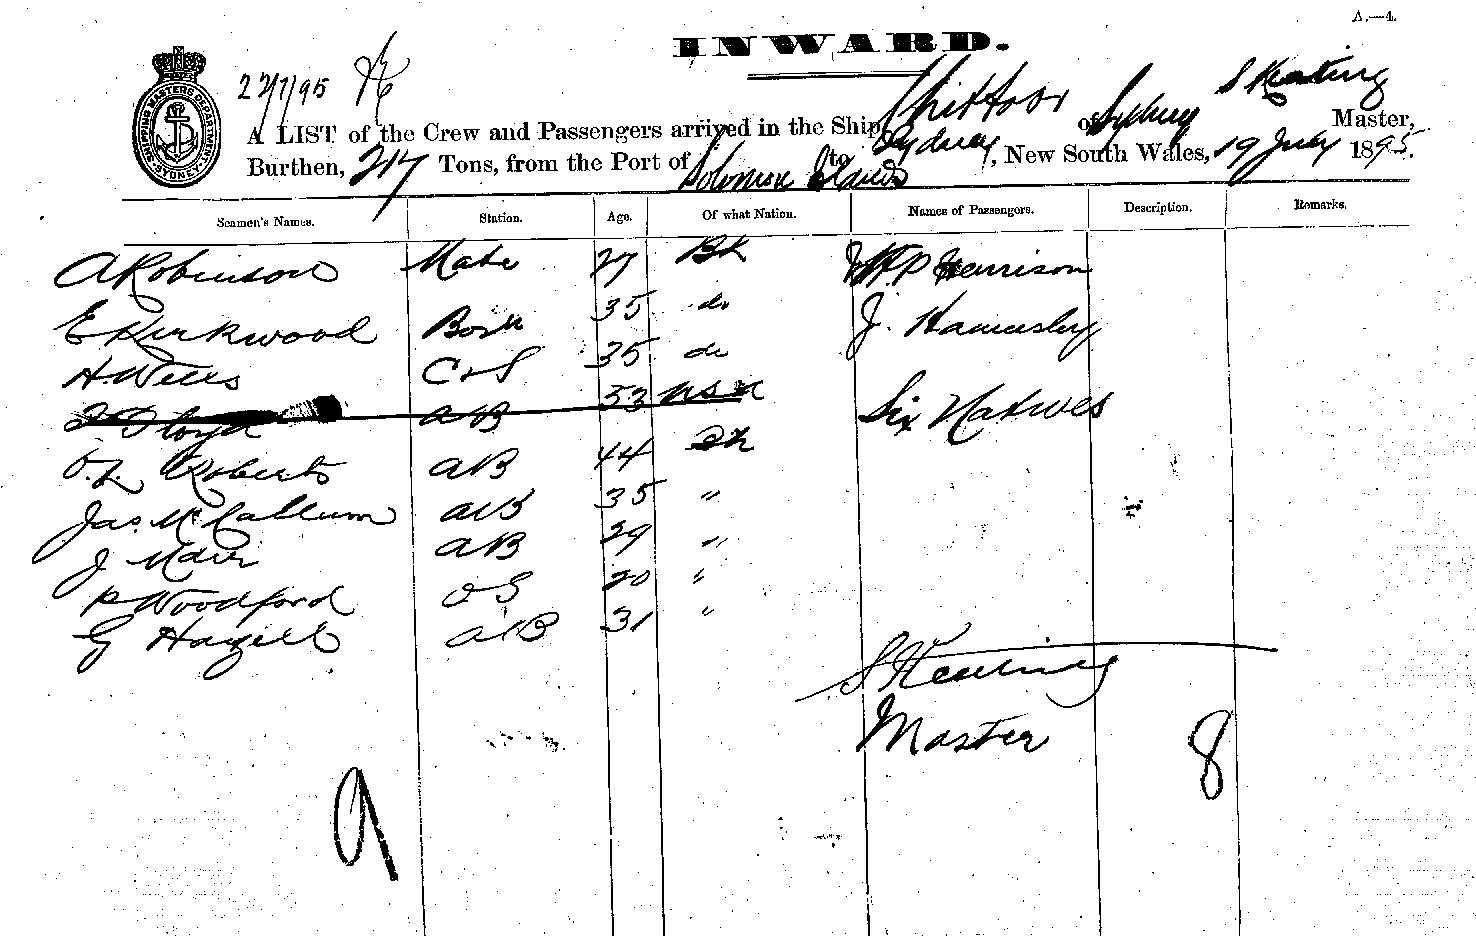 A.—4.
INWARD.
SHIPPING MASTERS DEPARTMENT
SYDNEY
22/7/95
A LIST of the Crew and Passengers arrived in the Ship Chittoor of Sydney S Keating Master,
Burthen, 247 Tons, from the Port of Solomon Islands to Sydney, New South Wales, 19 July 1895.
Seamen's Names. Station. Age. Of what Nation. Names of Passengers. Description. Remarks.
A Robinson Mate 27 Bh W P Harrison
E Kirkwood 35 do J. Hamersley
H. Wells C & S 35 do
Floyd AB 53 USA Six Natives
Roberts AB 44 Bh
Jas. McCallum AB 35 "
J Mair AB 29 "
P Woodford OS 20 "
G Hazell AB 31 "
S Keating
Master
9 8